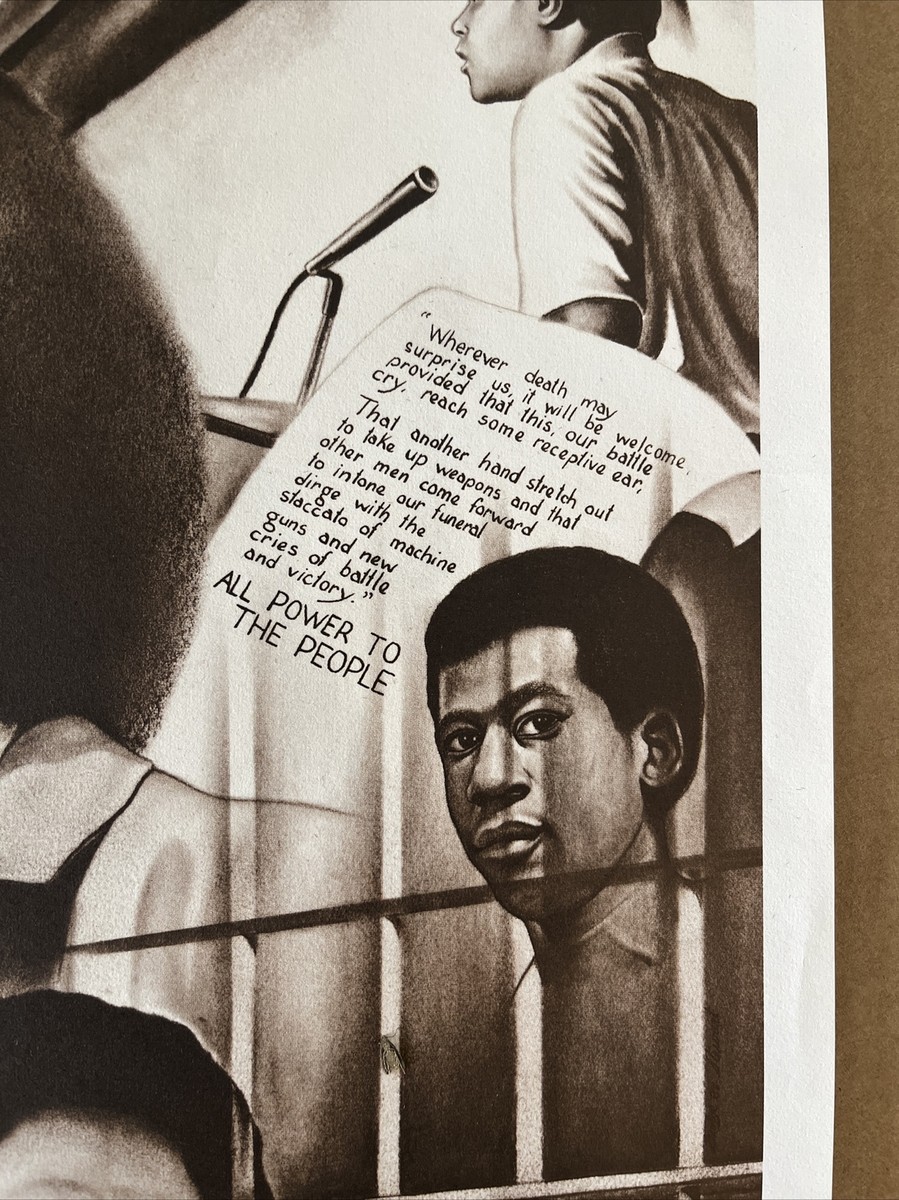 "Wherever death may
surprise us, it will be welcome,
provided that this, our battle
cry, reach some receptive ear,
That another hand stretch out
to take up weapons and that
other men come forward
to intone our funeral
dirge with the
staccato of machine
guns and new
cries of battle
and victory."
ALL POWER TO
THE PEOPLE